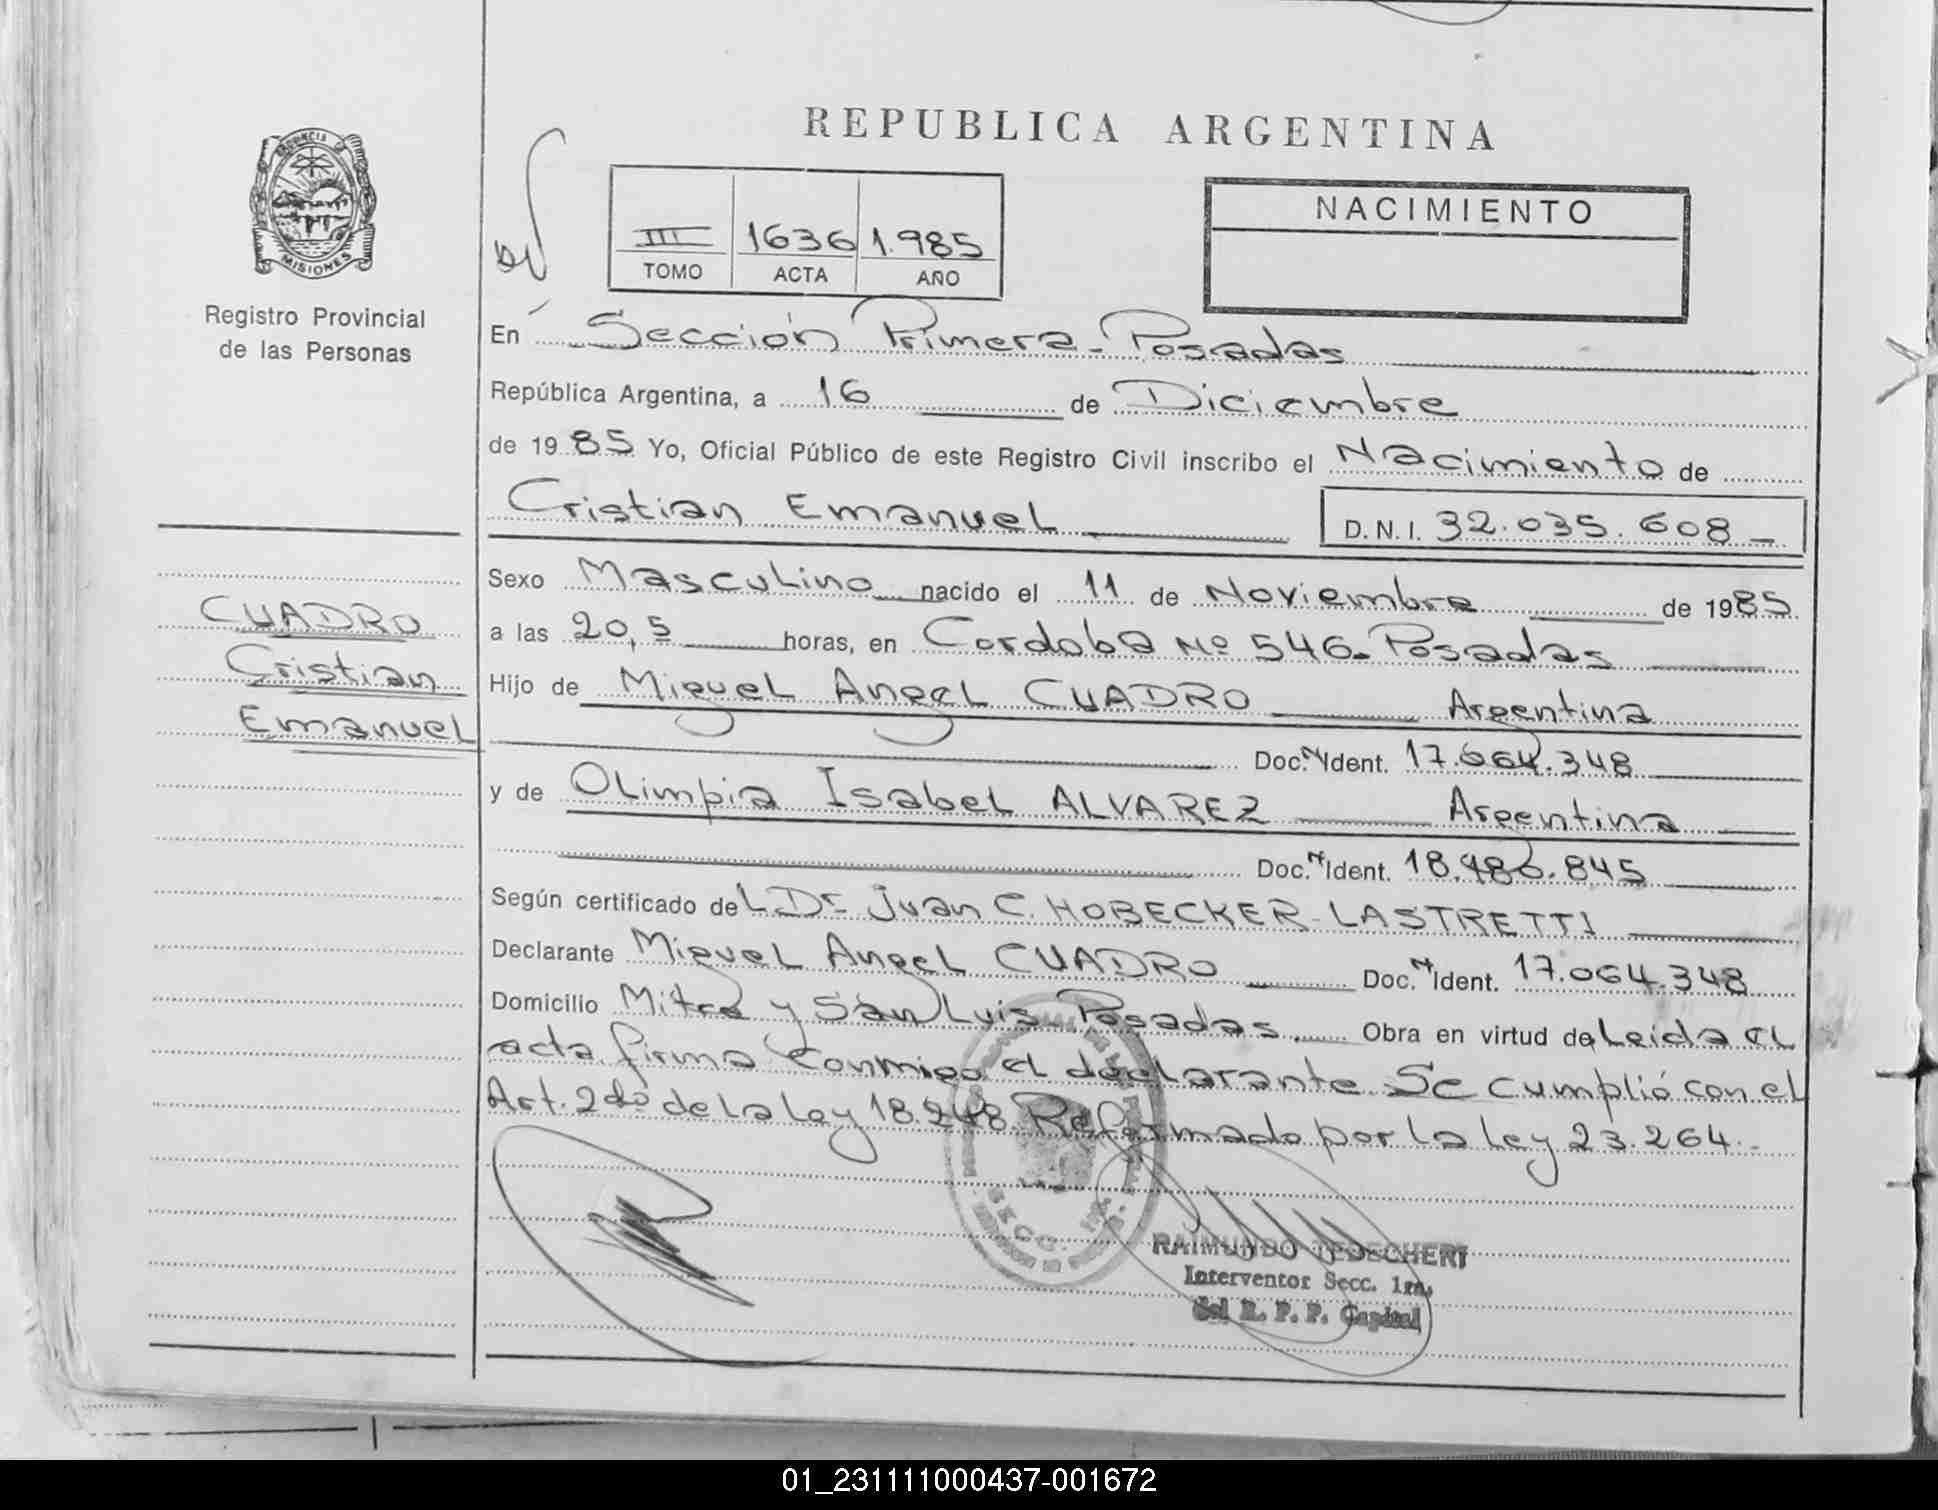 REPUBLICA ARGENTINA
PROVINCIA DE
MISIONES
Registro Provincial
de las Personas
III 1636 1.985
TOMO ACTA AÑO
NACIMIENTO
En Sección Primera - Posadas
República Argentina, a 16 de Diciembre
de 1985 Yo, Oficial Público de este Registro Civil inscribo el Nacimiento de
Cristian Emanuel D.N.I. 32.035.608 -
Sexo Masculino nacido el 11 de Noviembre de 1985
a las 20,5 horas, en Cordoba Nº 546 - Posadas
CUADRO
Cristian
Emanuel
Hijo de Miguel Angel CUADRO Argentina
Doc. N Ident. 17.064.348
y de Olimpia Isabel ALVAREZ Argentina
Doc. N Ident. 18.486.845
Según certificado del Dr Juan C. HOBECKER - LASTRETTI
Declarante Miguel Angel CUADRO Doc. N Ident. 17.064.348
Domicilio Mitre y San Luis - Posadas. Obra en virtud de Leida el
acta firma conmigo el declarante Se cumplió con el
Art. 2do de la Ley 18.248. Reformado por la Ley 23.264.-
SECC. 1ra.
RAIMUNDO TEDECHERI
Interventor Secc. 1ra.
del R. P. P. Capital
01_231111000437-001672